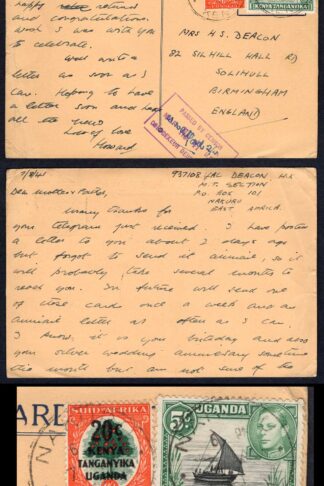 happy returns
and congratulations.
wish I was with you
to celebrate.
Well write a
letter as soon as I
can. Hoping to have
a letter soon and hear
all the news
Lots of love
Howard.
MRS H.S. DEACON
82 SILHILL HALL RD
SOLIHULL
BIRMINGHAM
ENGLAND
PASSED BY CENSOR
KENYA TANGANYIKA
7/8/41
937108 LAC DEACON H.A
M.T. SECTION
PO. BOX 101
NAKURU
EAST AFRICA.
Dear Mother & Father,
Many thanks for
your telegram just received. I have posted
a letter to you about 2 days ago
but forgot to send it airmail, so it
will probably take several months to
reach you. In future will send one
of these cards once a week and an
airmail letter as often as I can.
I know it is your birthday and also
your silver wedding anniversary sometime
this month but am not sure of the
ARD
SUID-AFRIKA
20c
KENYA
TANGANYIKA
UGANDA
5c
UGANDA
NA